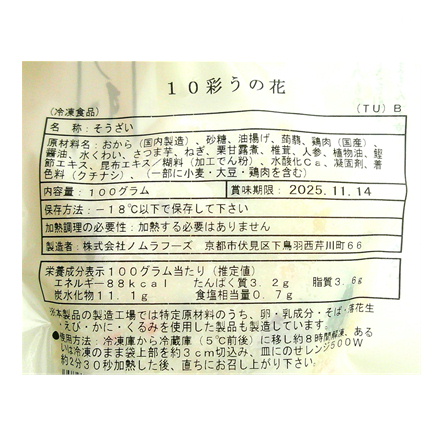 10彩うの花
(冷凍食品)
(TU) B
名 称:そうざい
原材料名:おから(国内製造)、砂糖、油揚げ、蒟蒻、鶏肉(国産)、
醤油、水くわい、さつま芋、ねぎ、栗甘露煮、椎茸、人参、植物油、鰹
節エキス、昆布エキス/糊料(加工でん粉)、水酸化Ca、凝固剤、着
色料(クチナシ)、(一部に小麦・大豆・鶏肉を含む)
内容量:100グラム
賞味期限:2025.11.14
保存方法:-18℃以下で保存して下さい
加熱調理の必要性:加熱する必要はありません
製造者:株式会社ノムラフーズ 京都市伏見区下鳥羽西芹川町66
栄養成分表示100グラム当たり(推定値)
エネルギー88kcal たんぱく質3.2g 脂質3.6g
炭水化物11.1g 食塩相当量0.7g
※本製品の製造工場では特定原材料のうち、卵・乳成分・そば・落花生
・えび・かに・くるみを使用した製品も製造しています。
●使用方法:冷凍庫から冷蔵庫(5℃前後)に移し約8時間解凍、ある
いは冷凍のまま袋上部を約3cm切込み、皿にのせレンジ500W
約2分30秒加熱した後、直ちにお召し上がり下さい。